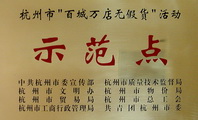 杭州市"百城万店无假货"活动
示范点
中共杭州市委宣传部 杭州市质量技术监督局
杭州市文明办 杭州市物价局
杭州市贸易局 杭州市总工会
杭州市工商行政管理局 共青团杭州市委